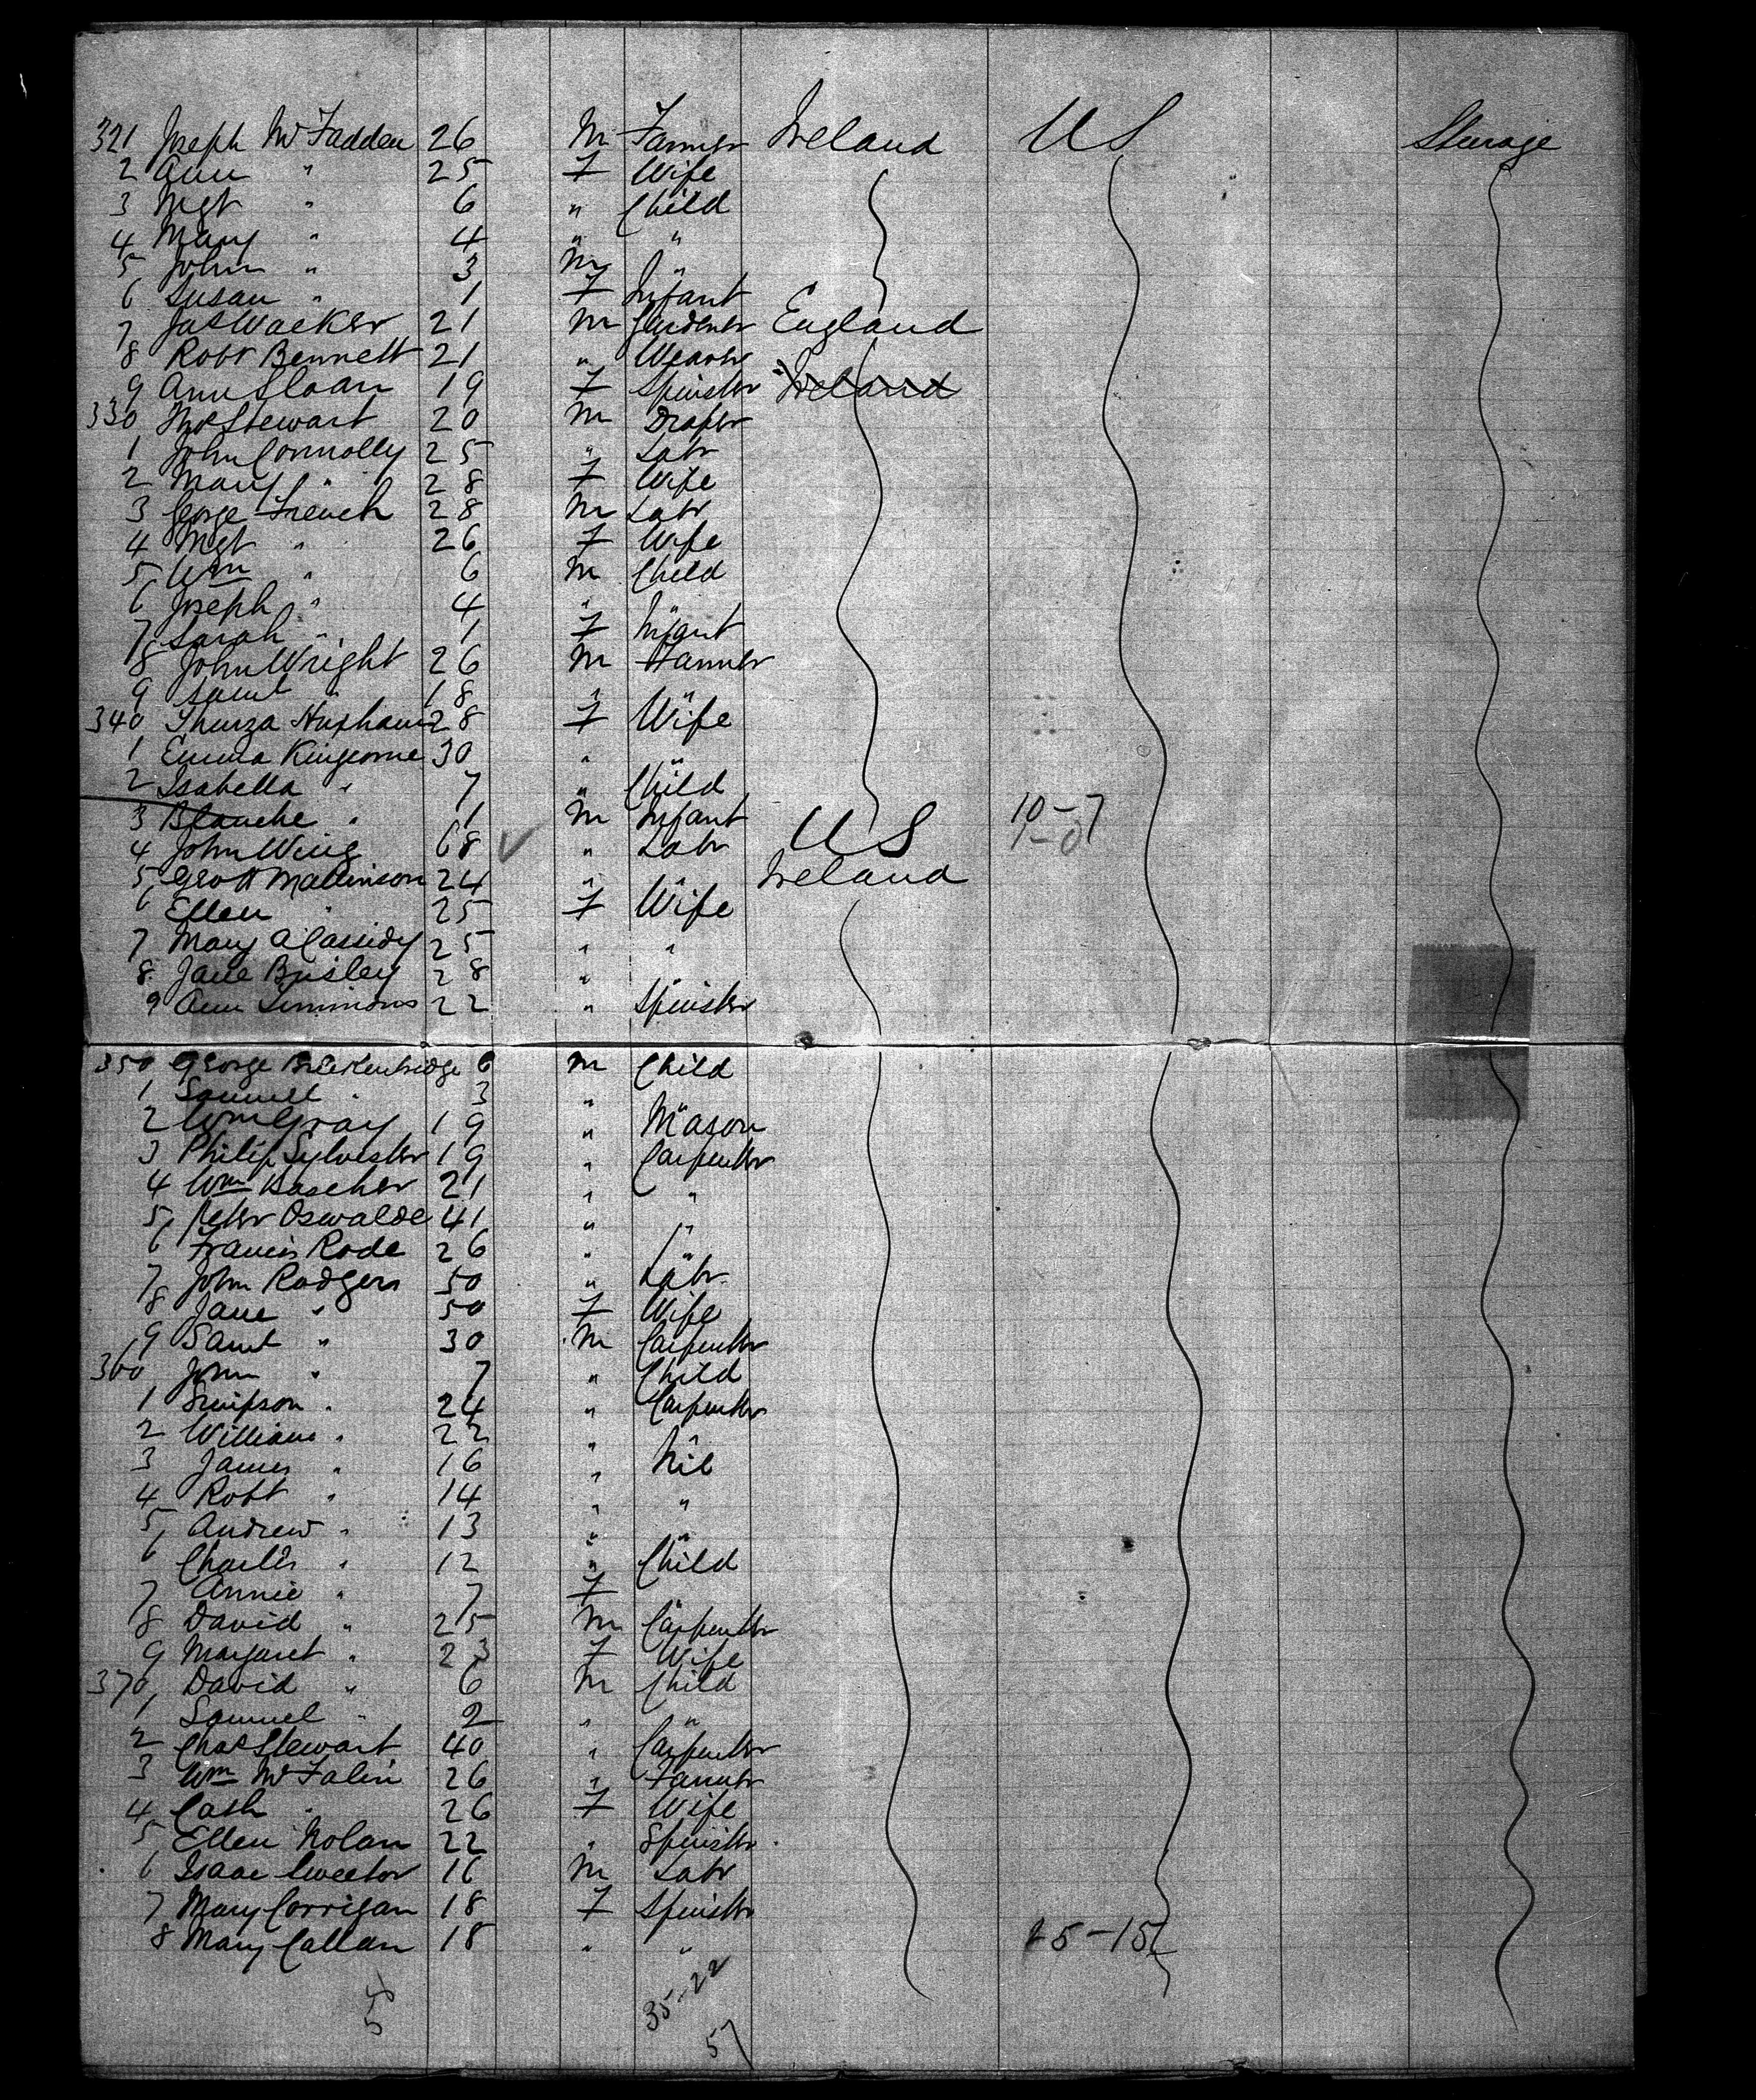 321 Joseph McFadden 26 M Farmer Ireland US Steerage
2 Ann " 25 F Wife
3 Mgt " 6 " Child
4 Mary " 4 " "
5 John " 3 M "
6 Susan " 1 F Infant
7 Jas Walker 21 M Gardener England
8 Robt Bennett 21 " Weaver
9 Ann Sloan 19 F Spinster Ireland
330 Thos Stewart 20 M Draper
1 John Connolly 25 " Labr
2 Mary " 28 F Wife
3 George French 28 M Labr
4 Mgt " 26 F Wife
5 Wm " 6 M Child
6 Joseph " 4 " "
7 Sarah " 1 F Infant
8 John Wright 26 M Farmer
9 Saml " 18 " "
340 Thurza Huxham 28 F Wife
1 Emma Kingcome 30 " "
2 Isabella " 7 " Child
3 Blanche " 1 M Infant 10-7
4 John Wing 68 " Labr US 1-0
5 Mallinson 24 " " Ireland
6 Ellen " 25 F Wife
7 Mary A Cassidy 25 " "
8 Jane Busley 28 " "
9 Ann Simmons 22 " Spinster
350 George Breckenbridge 6 M Child
1 Samuel " 3 " "
2 Wm Gray 19 " Mason
3 Philip Sylvester 19 " Carpenter
4 Wm Bascher 21 " "
5 Peter Oswalde 41 " "
6 Francis Rode 26 " "
7 John Rodgers 50 " Labr
8 Jane " 50 F Wife
9 Saml " 30 M Carpenter
360 John " 7 " Child
1 Simpson " 24 " Carpenter
2 William " 22 " "
3 James " 16 " Nil
4 Robt " 14 " "
5 Andrew " 13 " "
6 Charles " 12 " Child
7 Annie " 7 F "
8 David " 25 M Carpenter
9 Margaret " 23 F Wife
370 David " 6 M Child
1 Samuel " 2 " "
2 Chas Stewart 40 " Carpenter
3 Wm McFalin 26 " Farmer
4 Cath " 26 F Wife
5 Ellen Nolan 22 " Spinster
6 Isaac 16 M Labr
7 Mary Corrigan 18 F Spinster
8 Mary Callan 18 " " 25-15
35-22
57